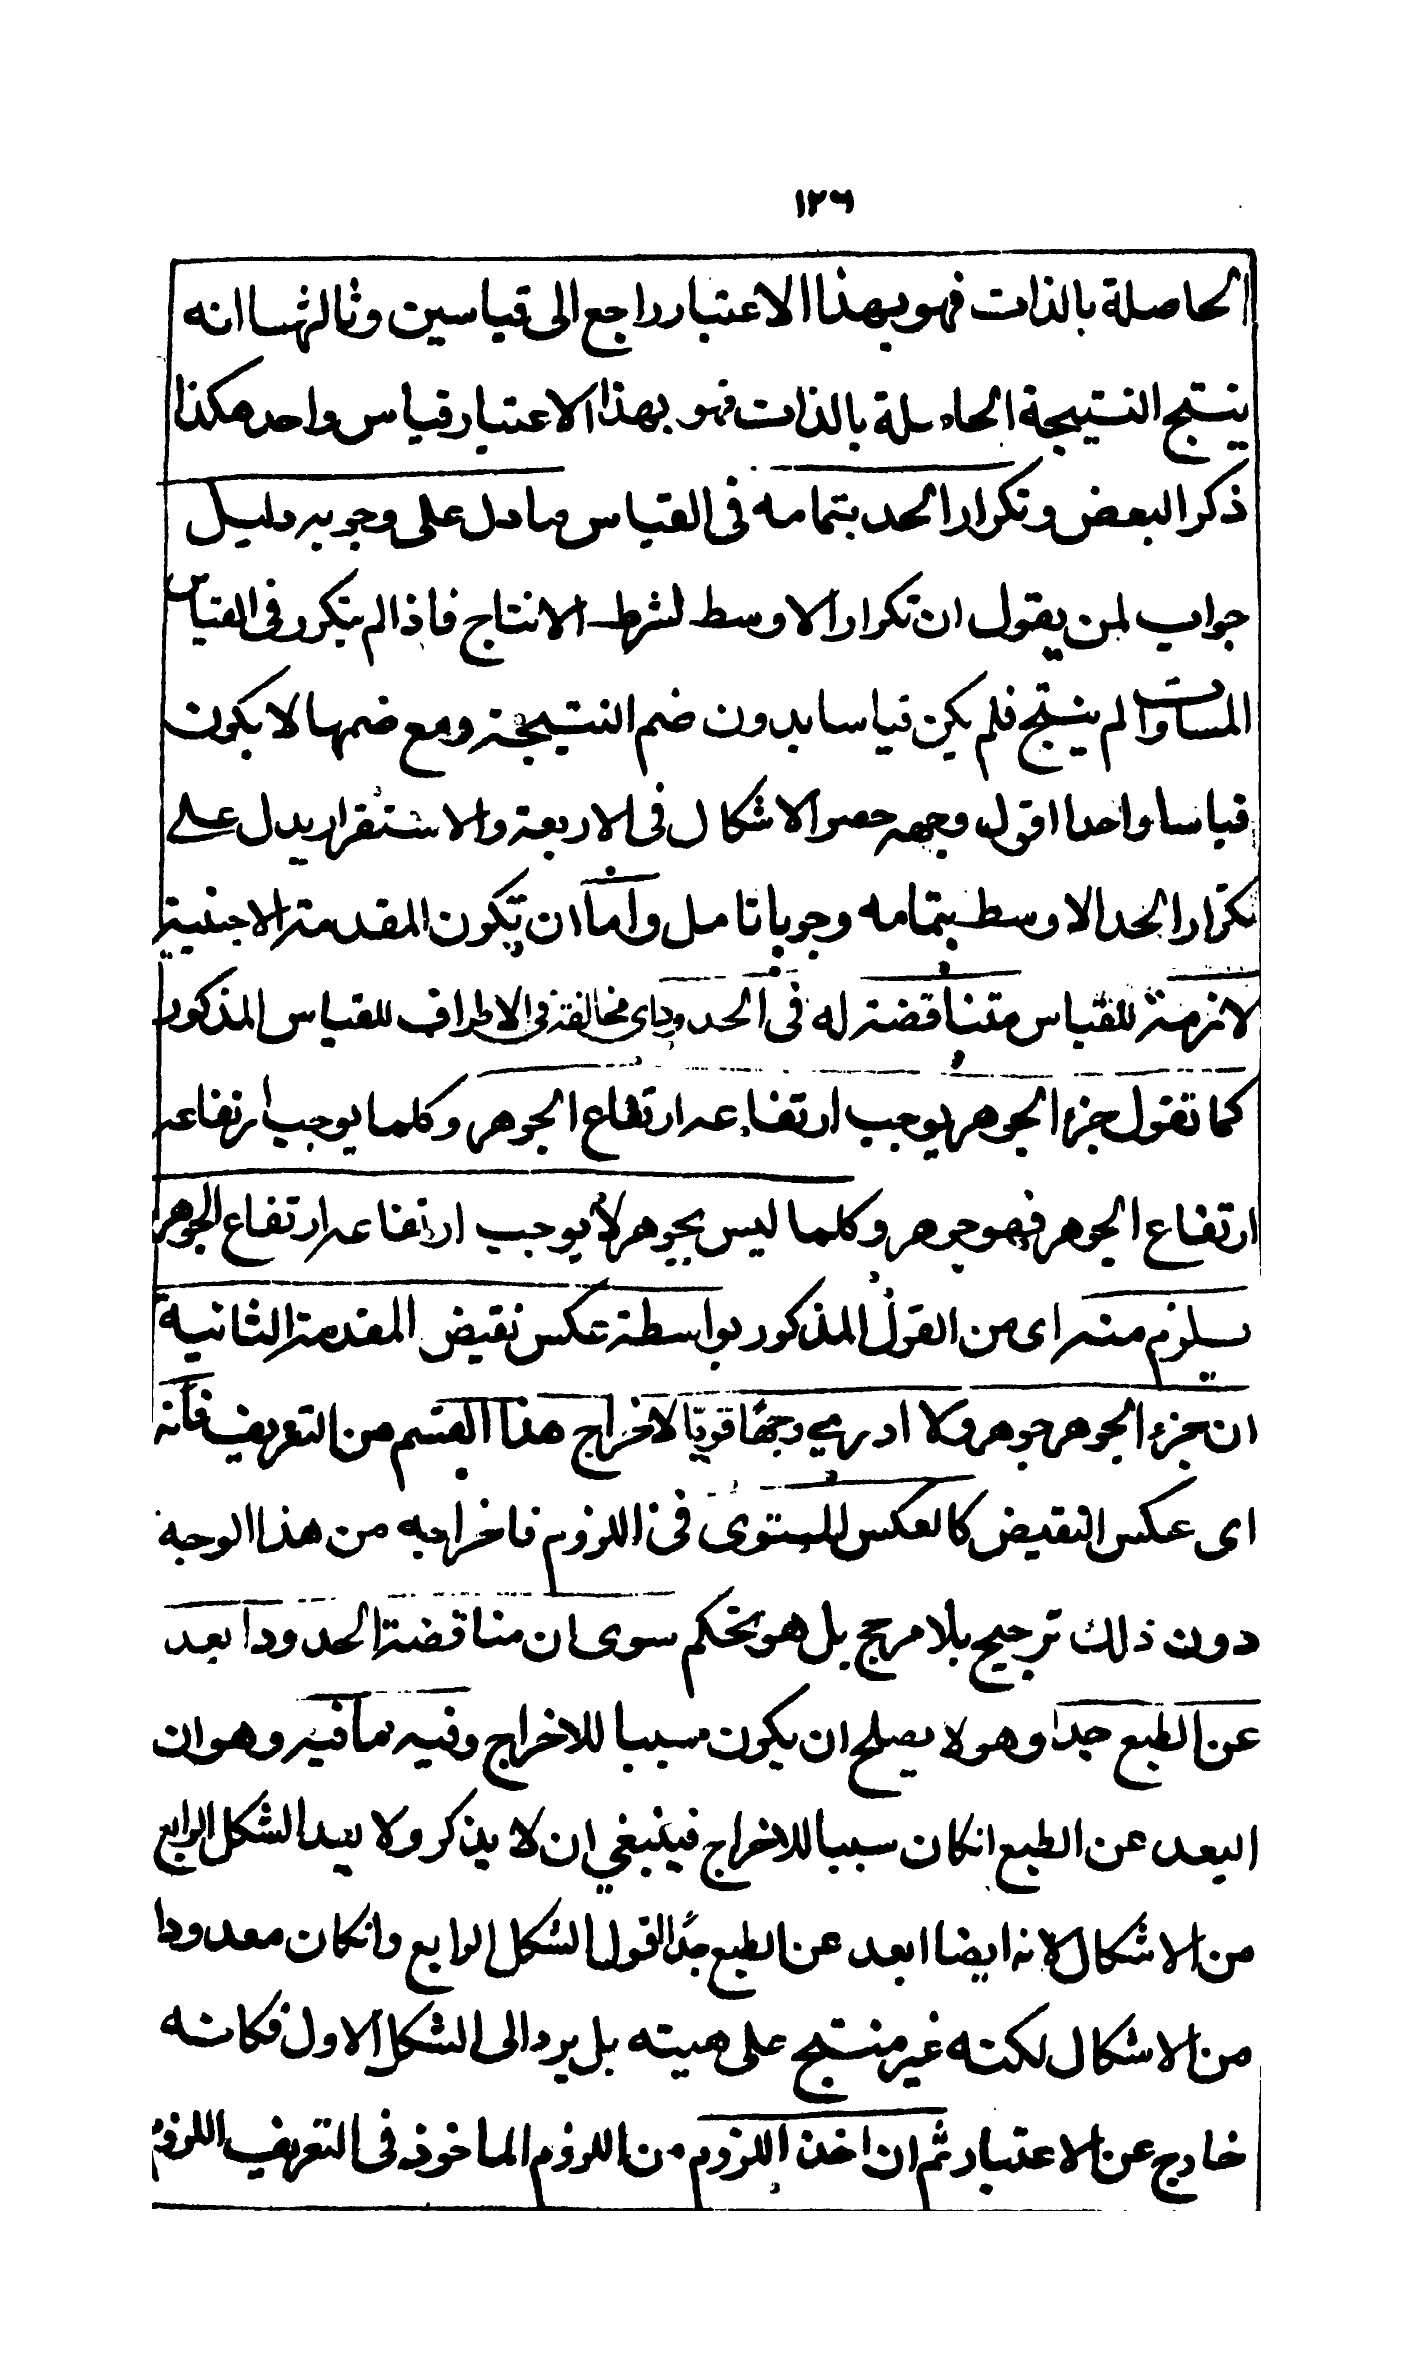 ١٢٦
الحاصلة بالذات فهو بهذا الاعتبار راجع الى قياسين وثالثها انه
ينتج النتيجة الحاصلة بالذات فهو بهذا الاعتبار قياس واحد هكذا
ذكر البعض وتكرار الحد بتمامه فى القياس ما دل على وجوبه دليل
جواب لمن يقول ان تكرار الاوسط لشرط الانتاج فاذا لم يتكرر فى القياس
المساوات لم ينتج فلم يكن قياسا بدون ضم النتيجة ومع ضمها لا يكون
قياسا واحدا اقول وجهه حصر الاشكال فى الاربعة والاستقرار يدل على
تكرار الحد الاوسط بتمامه وجوبا تامل واما ان تكون المقدمة الاجنبية
لازمة للقياس متناقضة له فى الحدود اى مخالفة فى الاطراف للقياس المذكور
كما تقول جزء الجوهر يوجب ارتفاعه ارتفاع الجوهر وكلما يوجب ارتفاعه
ارتفاع الجوهر فهو جوهر وكلما ليس بجوهر لا يوجب ارتفاعه ارتفاع الجوهر
يلزم منه اى من القول المذكور بواسطة عكس نقيض المقدمة الثانية
ان جزء الجوهر جوهر ولا ادرى وجها قويا لاخراج هذا القسم من التعريف فانه
اى عكس النقيض كالعكس المستوى فى اللزوم فاخراجه من هذا الوجه
دون ذلك ترجيح بلا مرجح بل هو تحكم سوى ان مناقضة الحدود ابعد
عن الطبع جدا وهو لا يصلح ان يكون سببا للاخراج وفيه ما فيه وهو ان
البعد عن الطبع انكان سببا للاخراج فينبغي ان لا يذكر ولا يبدا الشكل الرابع
من الاشكال لانه ايضا ابعد عن الطبع جدا اقول الشكل الرابع وانكان معدودا
من الاشكال لكنه غير منتج على هيته بل يرد الى الشكل الاول فكانه
خارج عن الاعتبار ثم ان اخذ اللزوم من اللزوم الماخوذ فى التعريف اللزوم